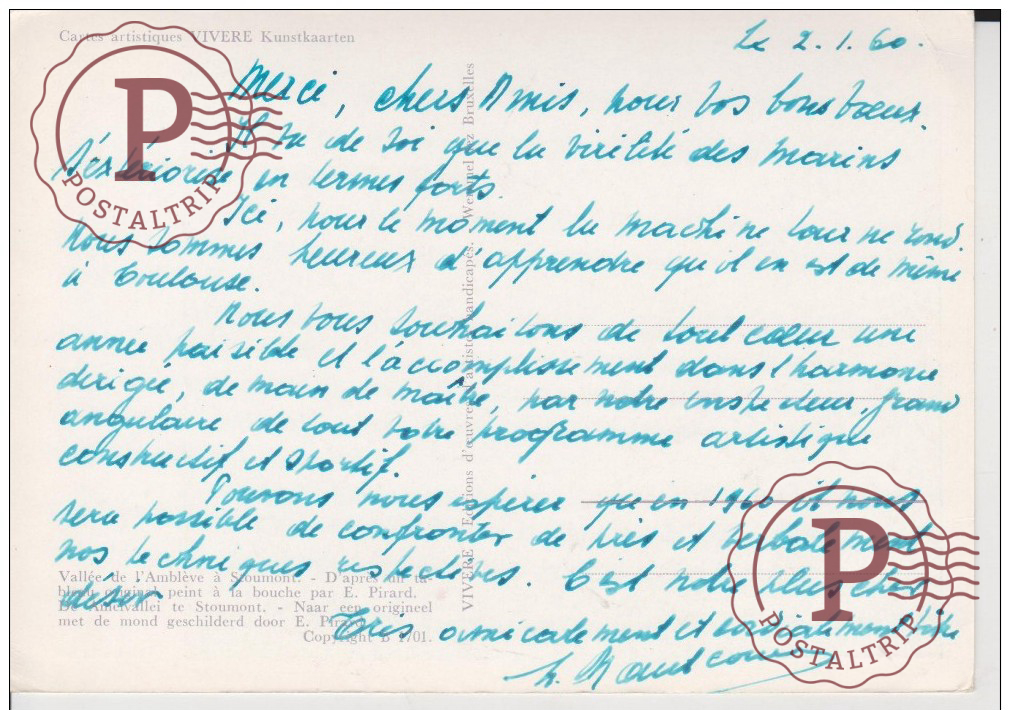 Cartes artistiques VIVERE Kunstkaarten
Le 2.1.60.
Merci, chers Amis, pour vos bons vœux.
Il va de soi que la virilité des marins
s'extériorise en termes forts.
Ici, pour le moment la machine tourne rond.
Nous sommes heureux d'apprendre qu'il en est de même
à Toulouse.
Nous vous souhaitons de tout cœur une
année paisible et l'accomplissement dans l'harmonie
dirigée, de main de maître, par notre inspecteur, grand
angulaire de tout votre programme artistique
constructif et sportif.
Pouvons nous espérer que en 1960 il nous
sera possible de confronter de près et verbalement
nos techniques respectives. C'est notre plus cher
désir.
Très amicalement et cordialement
VIVERE - Editions d'œuvres d'artistes handicapés. Wemmel lez Bruxelles
Vallée de l'Amblève à Stoumont. - D'après un ta-
bleau original peint à la bouche par E. Pirard.
De Amelvallei te Stoumont. - Naar een origineel
met de mond geschilderd door E. Pirard.
Copyright B 1701.
P
POSTALTRIP
P
POSTALTRIP